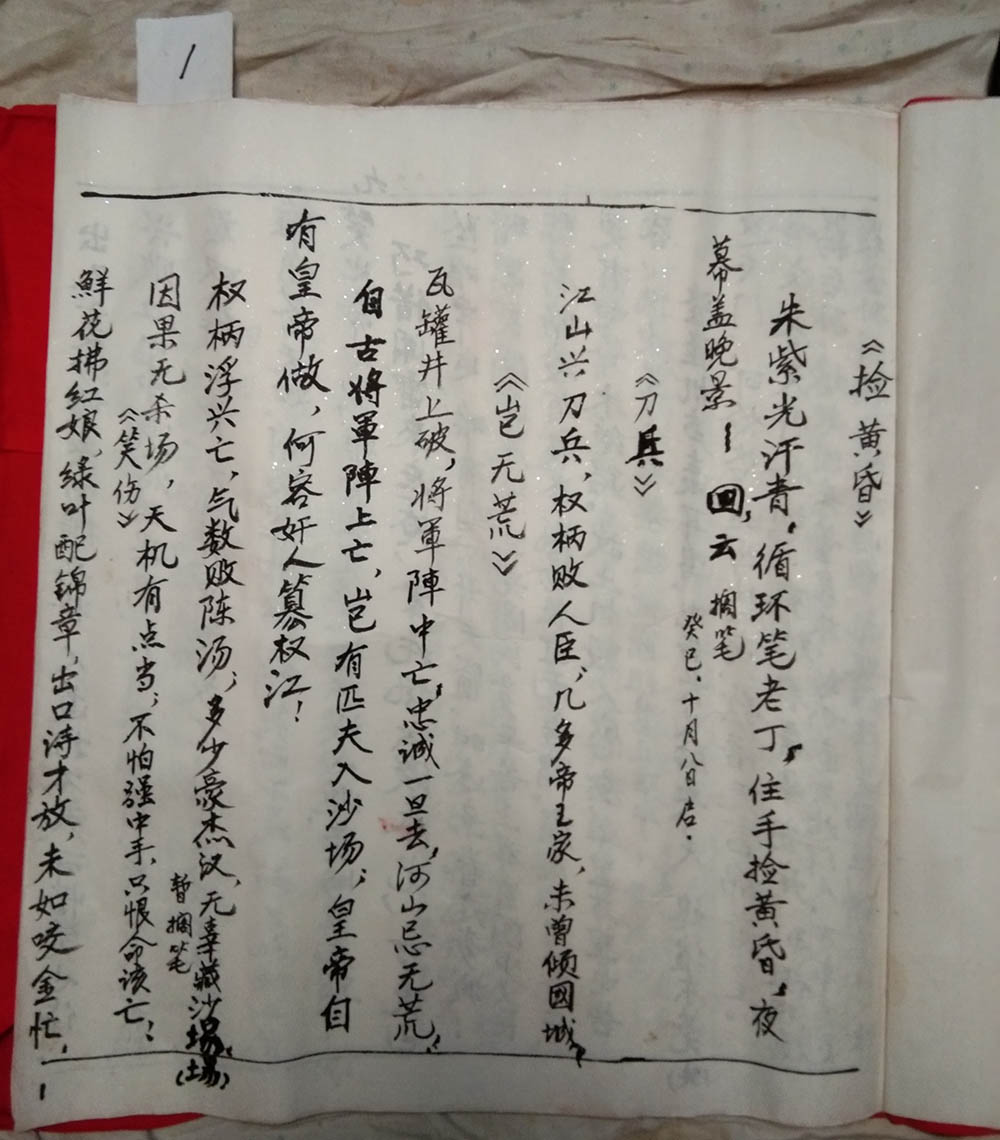 1
《捡黄昏》
朱紫光汗青,循环笔老丁,住手捡黄昏,夜
幕盖晚景— 回云 搁笔
癸巳、十月八日启.
《刀兵》
江山兴刀兵,权柄败人臣,几多帝王家,未曾倾國城,
《岂无荒》
瓦罐井上破,将軍陣中亡,忠诚一旦去,河山忌无荒,
自古将軍陣上亡,岂有匹夫入沙场;皇帝自
有皇帝做,何容奸人篡权江!
权柄浮兴亡,气数败陈汤,多少豪杰汉,无辜藏沙場,
(場)
暂搁笔
因果无杀场,天机有点当;不怕强中手,只恨命该亡!
《笑伤》
鮮花拂红娘,绿叶配锦章,出口诗才放,未如咬金忙,
1